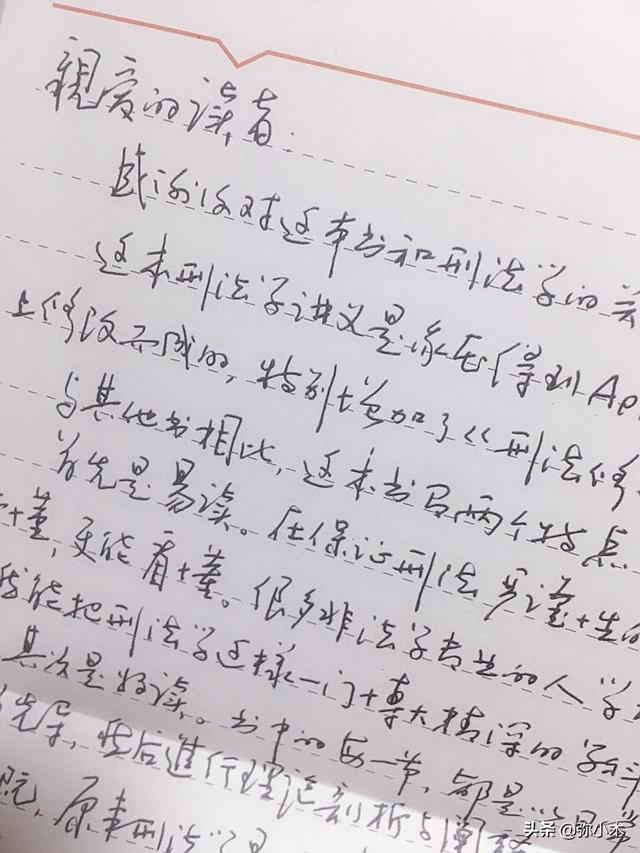 親爱的读者:
感谢你对这本书和刑法学的关
这本刑法学讲义是我在得到Ap
上修改而成的,特别增加了《刑法修
与其他书相比,这本书有两个特点
首先是易读。在保证刑法严谨性的
懂,更能看懂。很多非法学专业的人学
我能把刑法学这样一门博大精深的学科
其次是好读。书中的每一节,都是以
先导,然后进行理论剖析与
原来刑法
头条 @弥小术